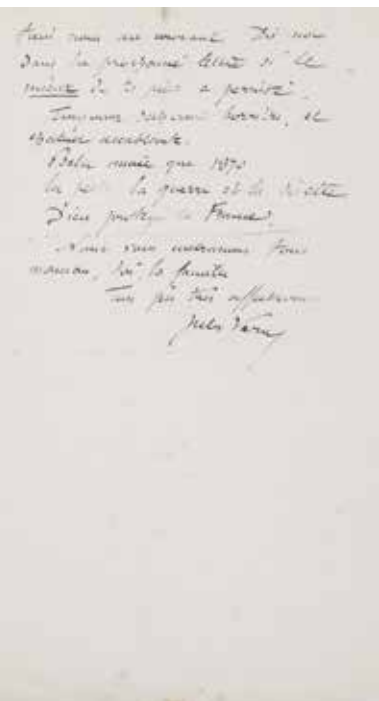 Tiens nous au courant. Dis nous
dans ta prochaine lettre si le
mieux de ta                a persisté.
Toujours                horrible, et
chaleur accablante.
Belle année que 1870
la                la guerre et la disette
Dieu protège la France.
Nous vous embrassons tous
maman, toi, la famille
Ton fils très affectionné
Jules Verne